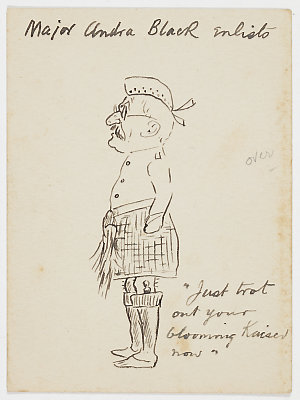 Major Andra Black enlists
over
"Just trot
out your
blooming Kaiser
now"